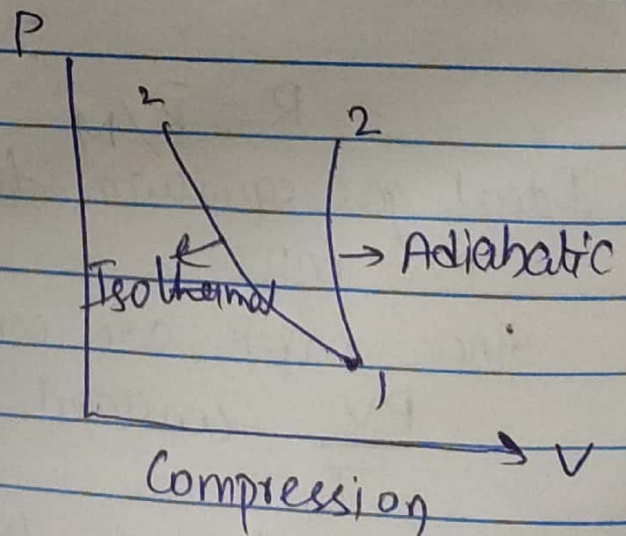 P
2
2
→ Adiabatic
Isothermal
1
V
Compression